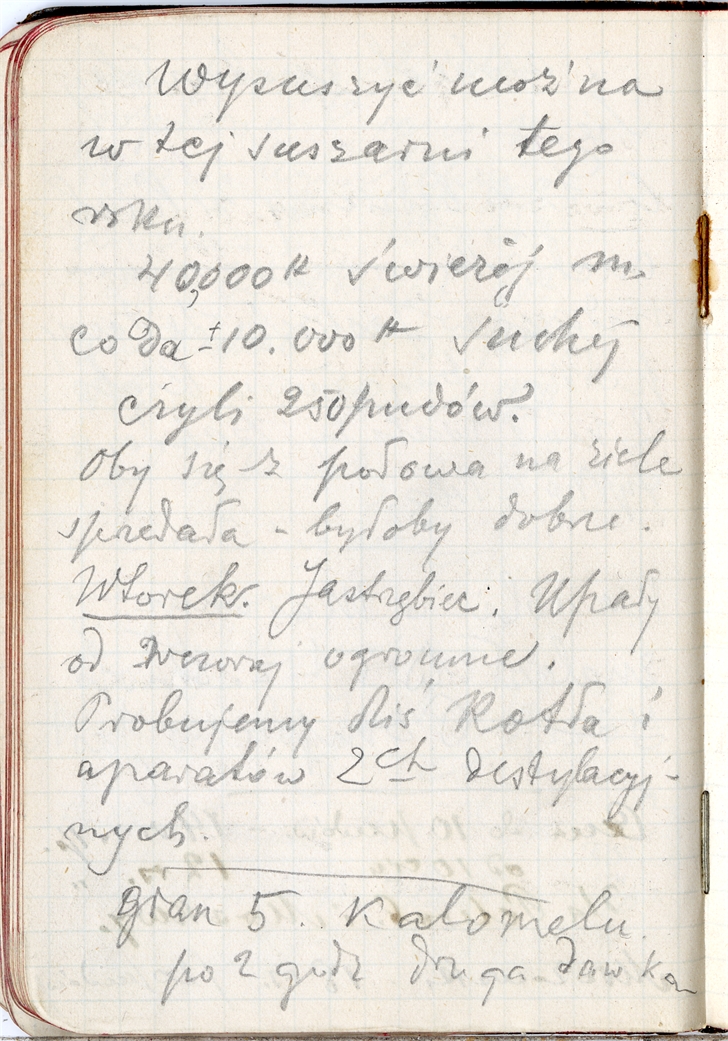 Wysuszyć można
w tej suszarni tego
roku.
40,000 tt świeżej m.
co da ± 10.000 tt suchej
czyli 250 pudów.
Oby się z połowa na ziele
spredała - byłoby dobrze.
Wtorek. Jastrzębiec. Upały
od wczoraj ogromne.
Probujemy dziś Kotła i
aparatów 2ch destylacyj-
nych.
gran 5. Kalomelu
po 2 godz druga dawka